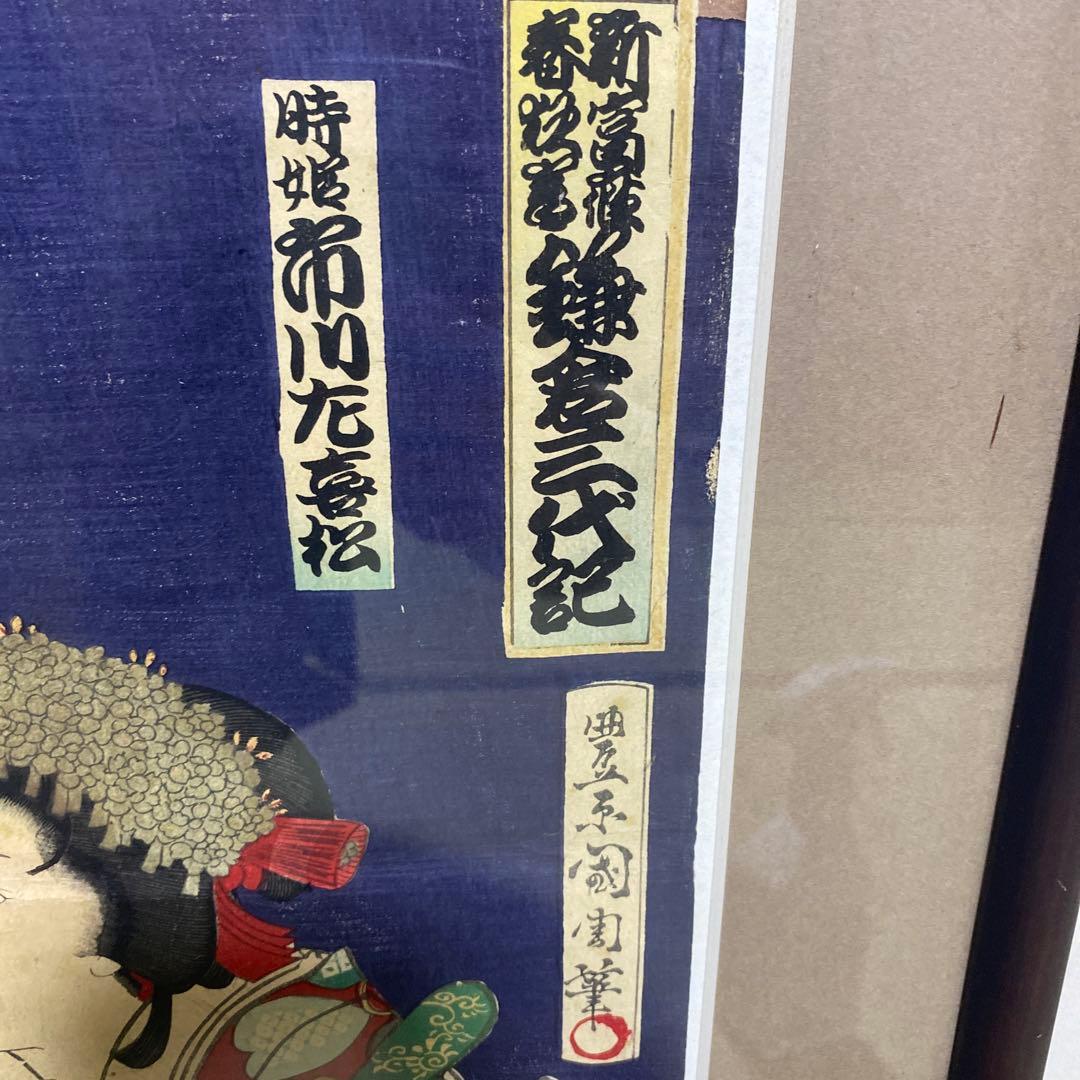 新富座
春狂言
鎌倉三代記
時姫 市川左喜松
豊原國周筆